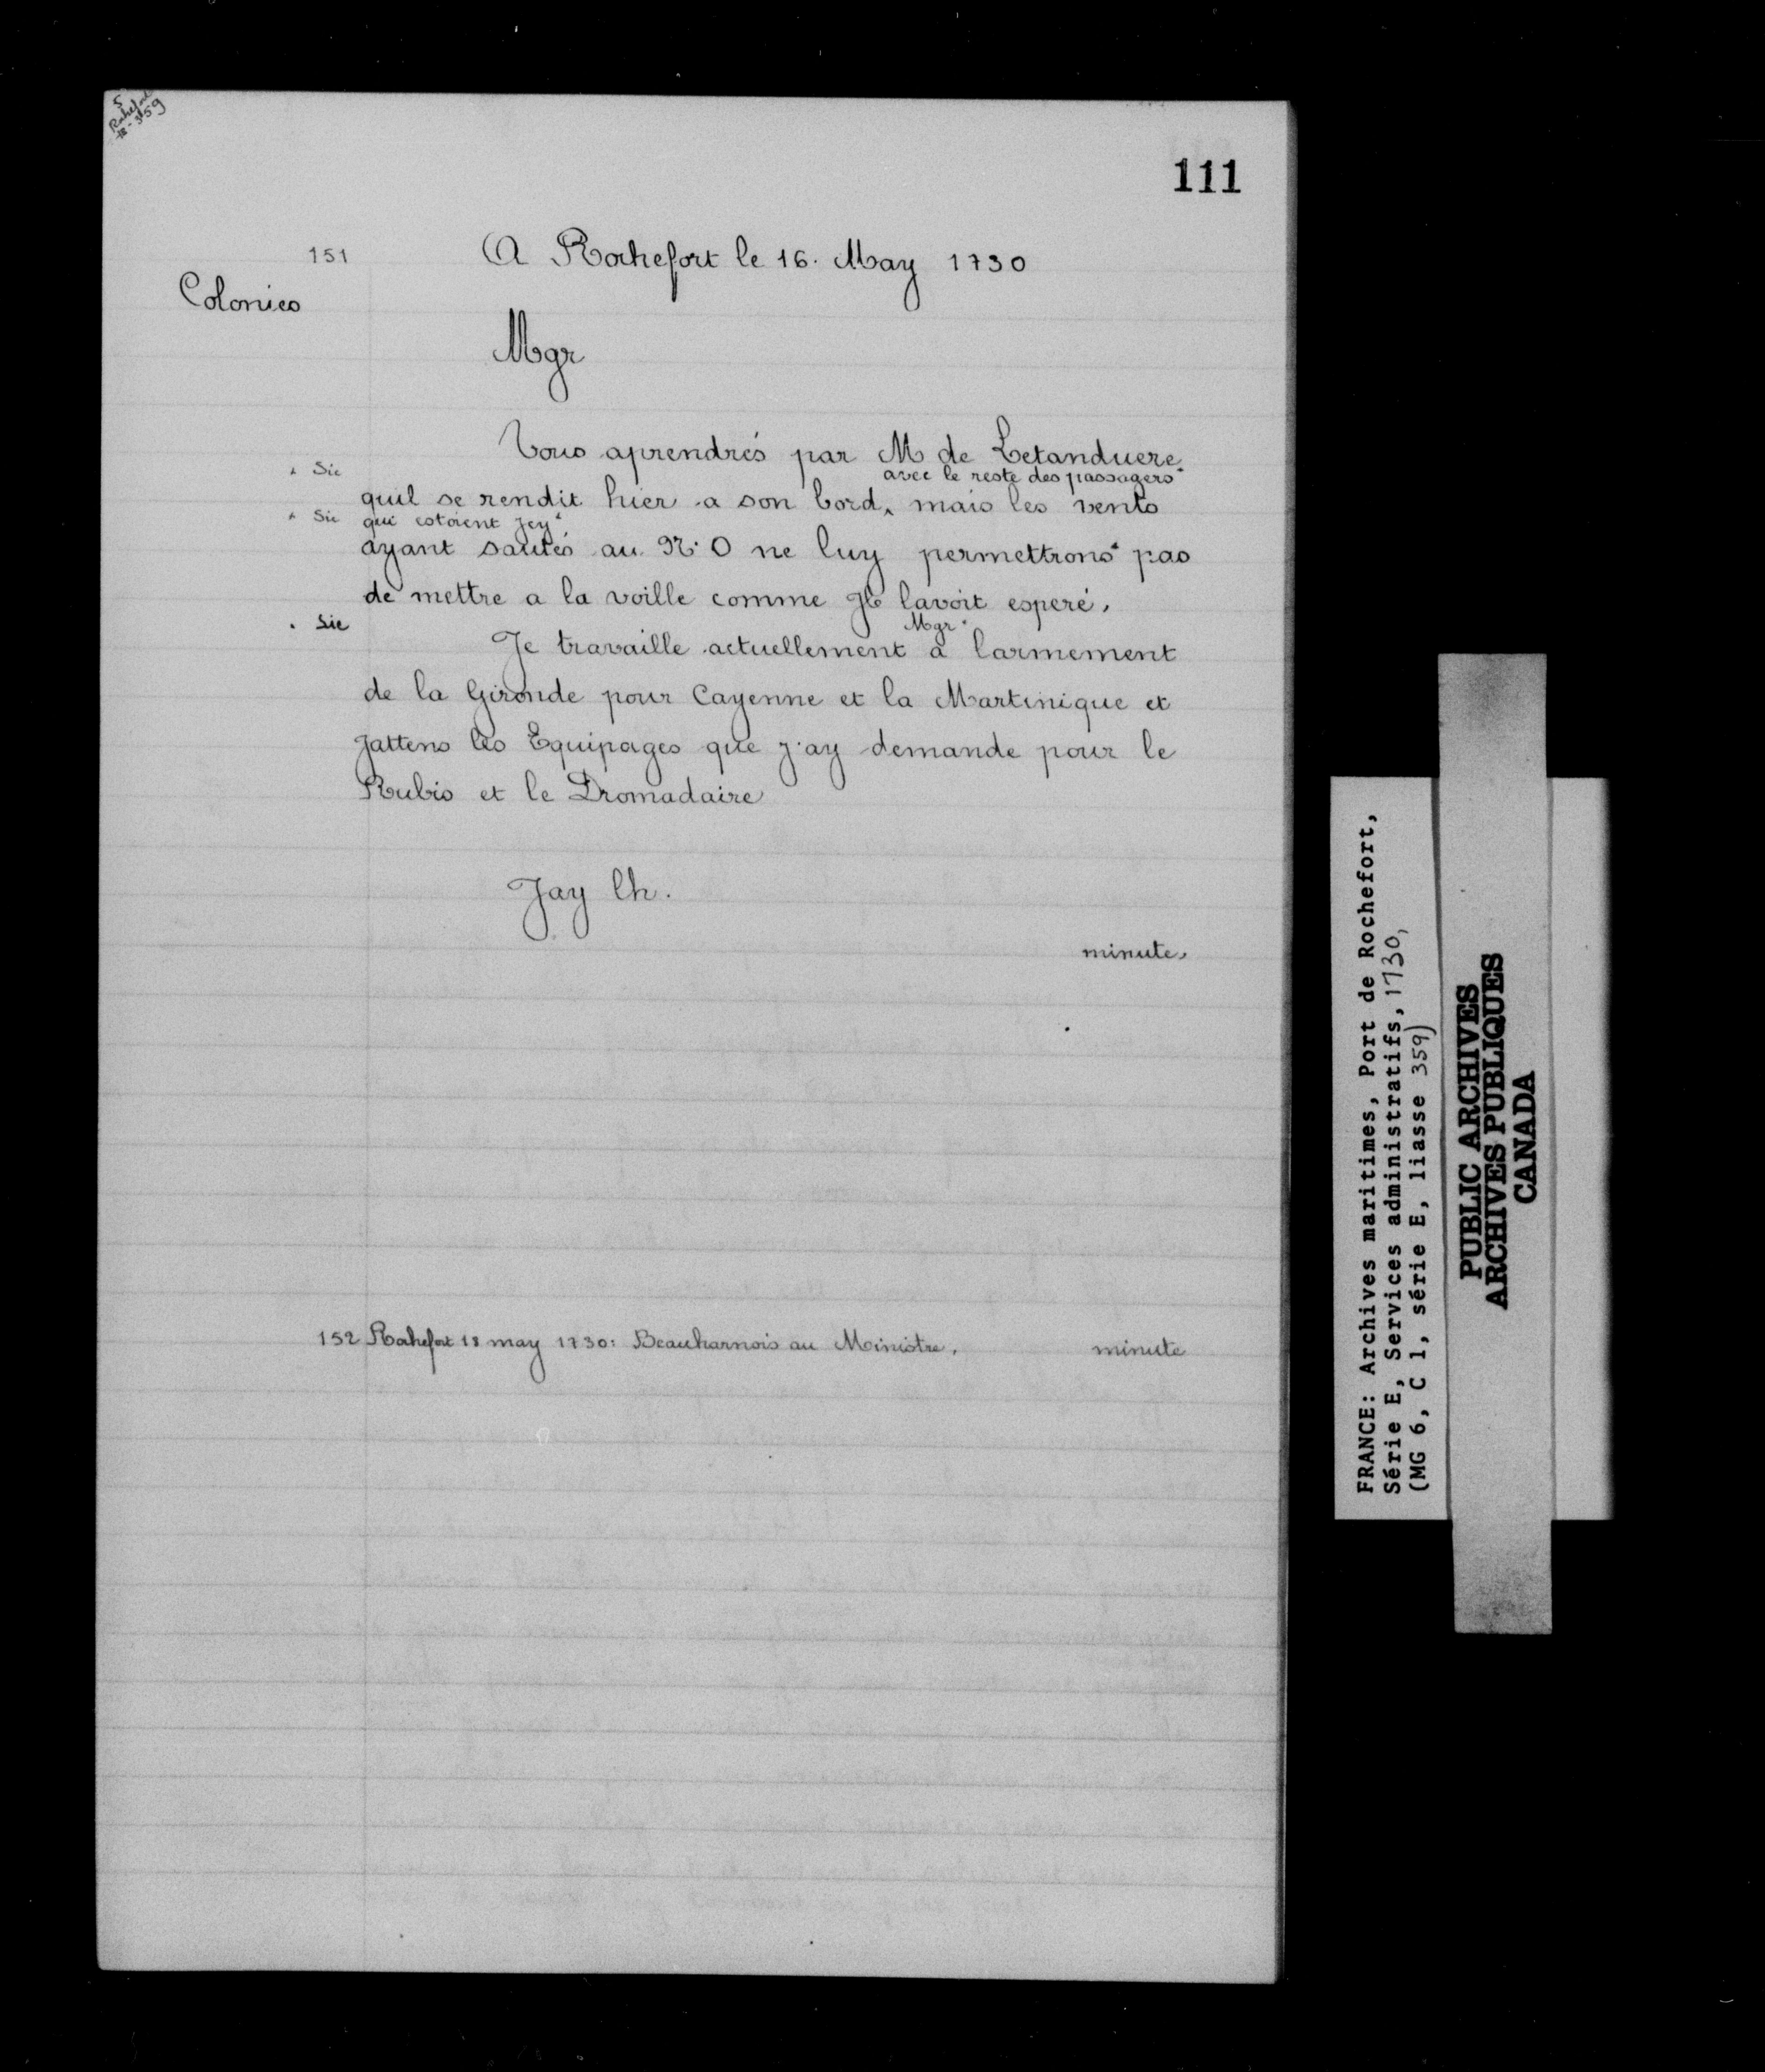 5
Rochefort
1E-359
111
151
A Rochefort le 16. May 1730
Colonies
Mgr
Vous aprendrés par M de Letanduere
* Sic
avec le reste des passagers*
quil se rendit hier a son bord, mais les vents
* Sic
qui estoient Jcy*
ayant sautés au N. O ne luy permettrons* pas
de mettre a la voille comme Jl lavoit esperé.
* Sic
Mgr*
Je travaille actuellement a larmement
de la Gironde pour Cayenne et la Martinique et
Jattens les Equipages que j'ay demande pour le
Rubis et le Dromadaire
Jay lh.
minute.
152 Rochefort 18 may 1730: Beauharnois au Ministre. minute
FRANCE: Archives maritimes, Port de Rochefort,
Série E, Services administratifs, 1730,
(MG 6, C 1, série E, liasse 359)
PUBLIC ARCHIVES
ARCHIVES PUBLIQUES
CANADA